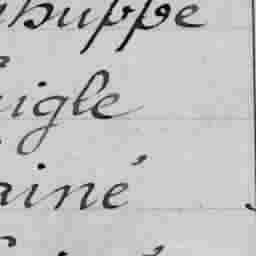 huppe
igle
ainé